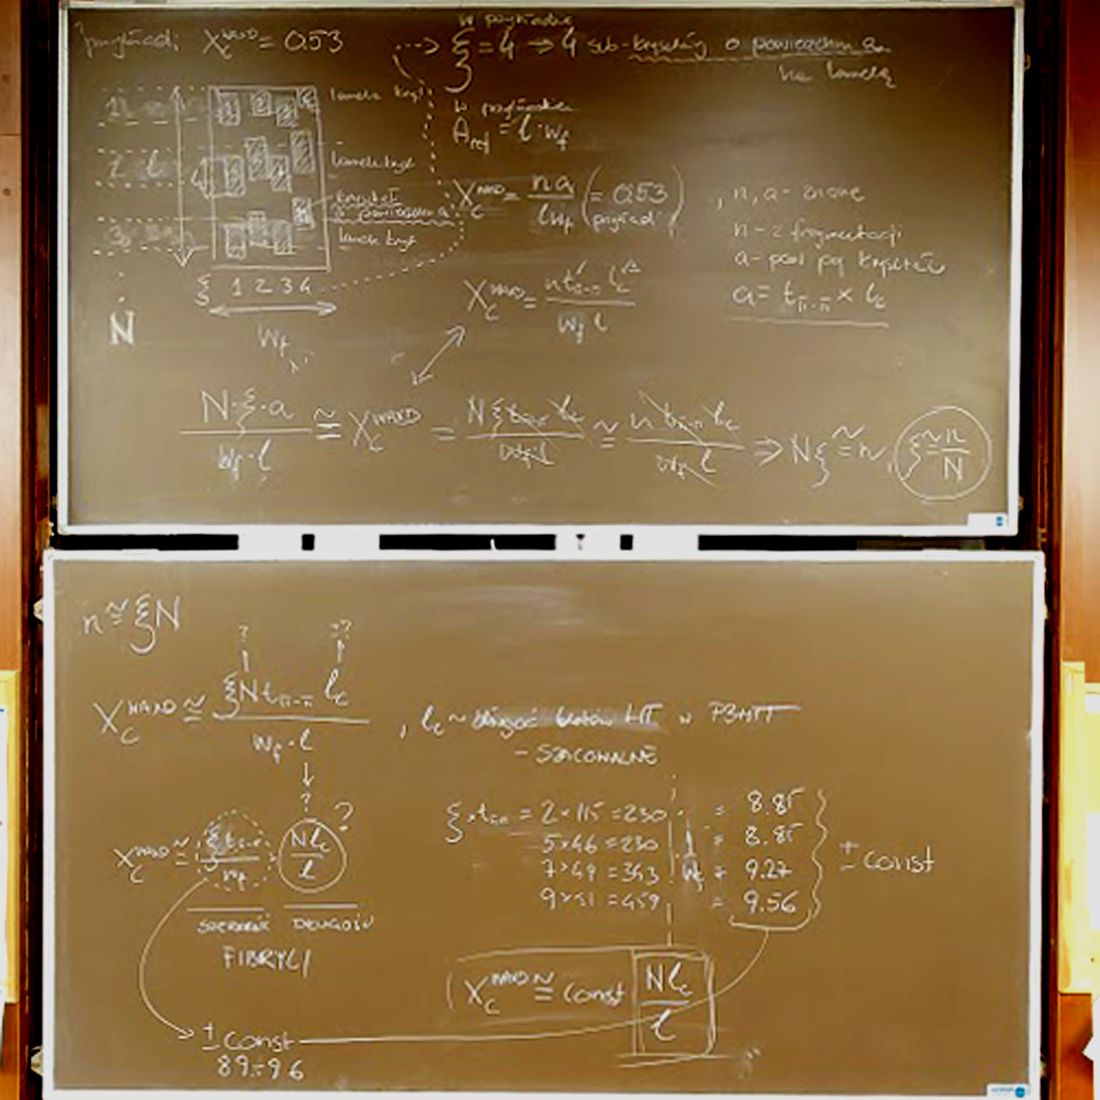 przykład: X_c^WAXD = 0.53
w przykładzie
ξ = 4 ⇒ 4 sub-kryształy o powierzchni a
na lamelę
lamela kryst
1
2 l
lamela kryst
kryształ
o powierzchni a
3
lamela kryst
ξ 1 2 3 4
N
W_f
w przykładzie
A_ref = l · w_f
X_c^WAXD = na / l w_f (= 0.53 przykład)
, n, a - znane
n - z fragmentacji
a - pow
a = t_π-π × l_c
X_c^WAXD = n t_π-π l_c / W_f l
N·ξ·a / W_f·l ≅ X_c^WAXD = N ξ t_π-π l_c / W_f·l ≅ n t_π-π l_c / W_f l ⇒ Nξ ≅ n, ξ ≅ n/N
n ≅ ξN
? ??
X_c^WAXD ≅ ξ N t_π-π l_c / W_f·l , l_c ~ długość bloków HT w P3HTT
- SZACOWALNE
?
X_c^WAXD ≅ ξ t_π-π / W_f · N l_c / l ?
SZEROKOŚĆ DŁUGOŚĆ
FIBRYLI
ξ × t_π-π = 2×115 = 230 = 8.85
5×46 = 230 = 8.85
7×49 = 343 W_f = 9.27
9×51 = 459 = 9.56
± const
X_c^WAXD ≅ const N l_c / l
± const
8.9÷9.6